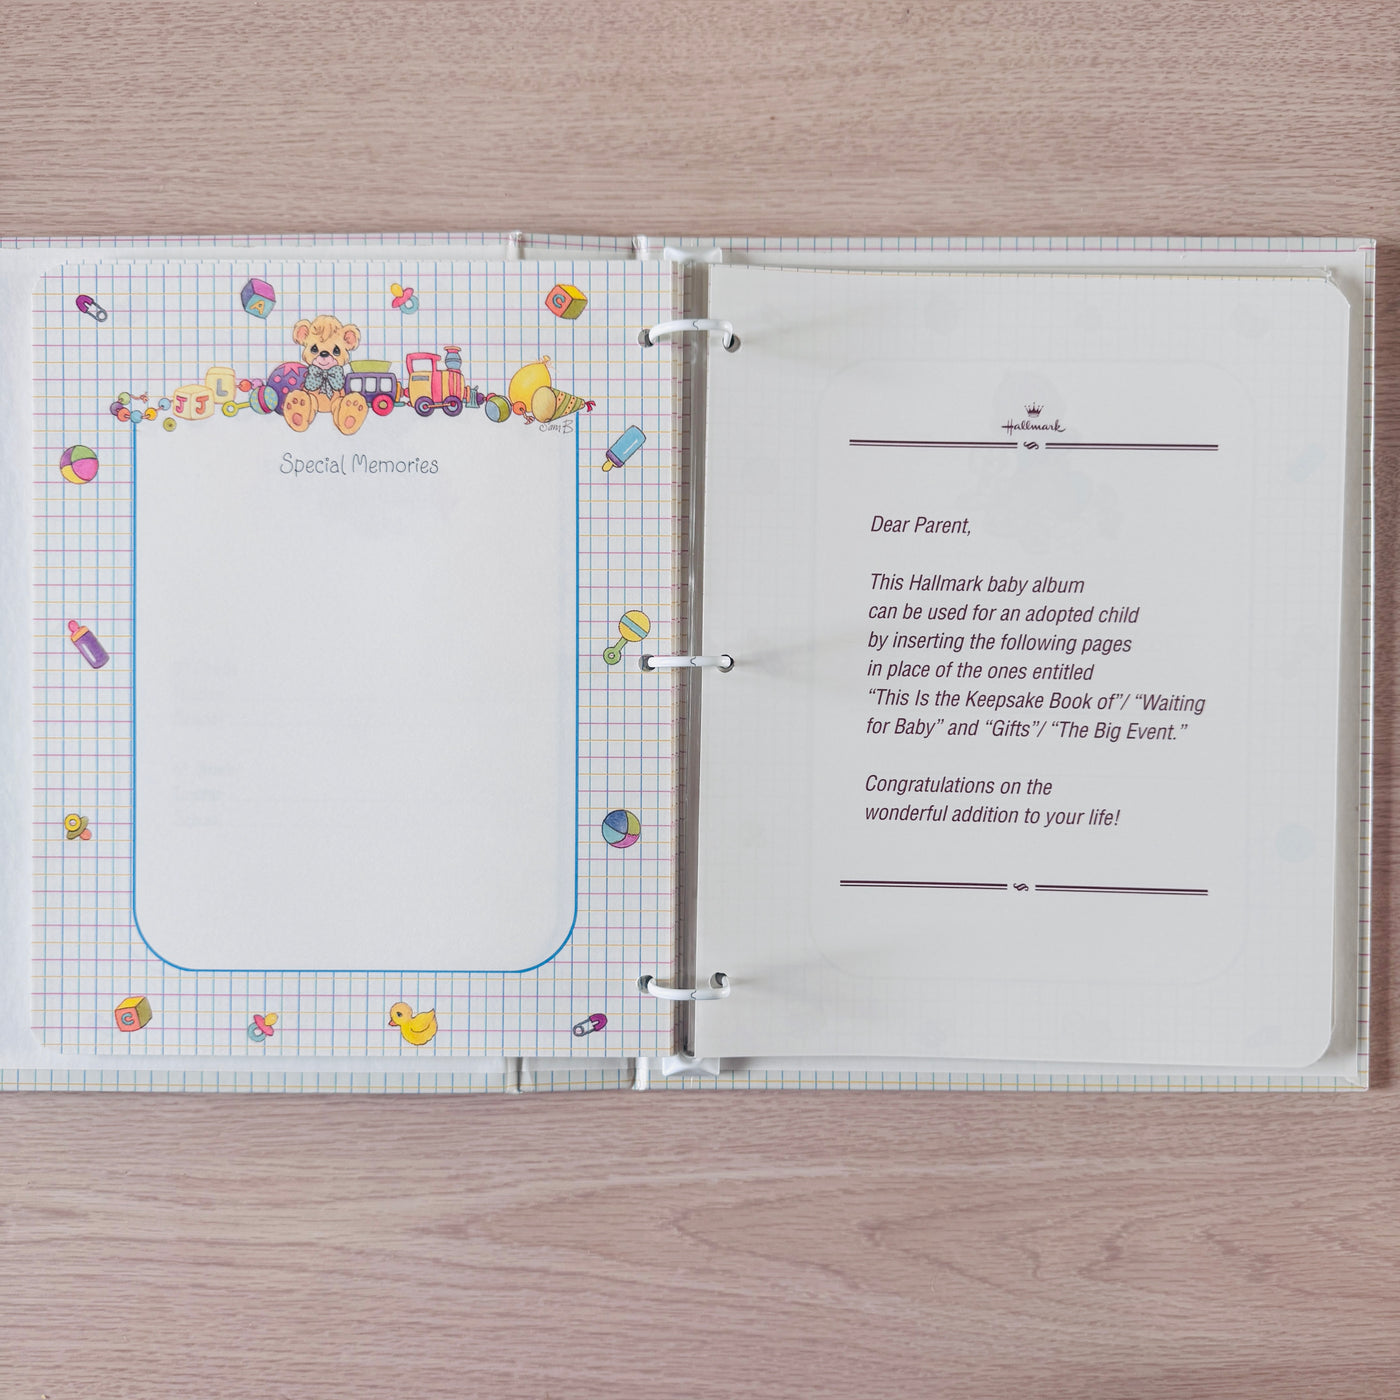 A
C
L
J J
Sam B
Special Memories
C
Hallmark
Dear Parent,
This Hallmark baby album
can be used for an adopted child
by inserting the following pages
in place of the ones entitled
“This Is the Keepsake Book of”/ “Waiting
for Baby” and “Gifts”/ “The Big Event.”
Congratulations on the
wonderful addition to your life!